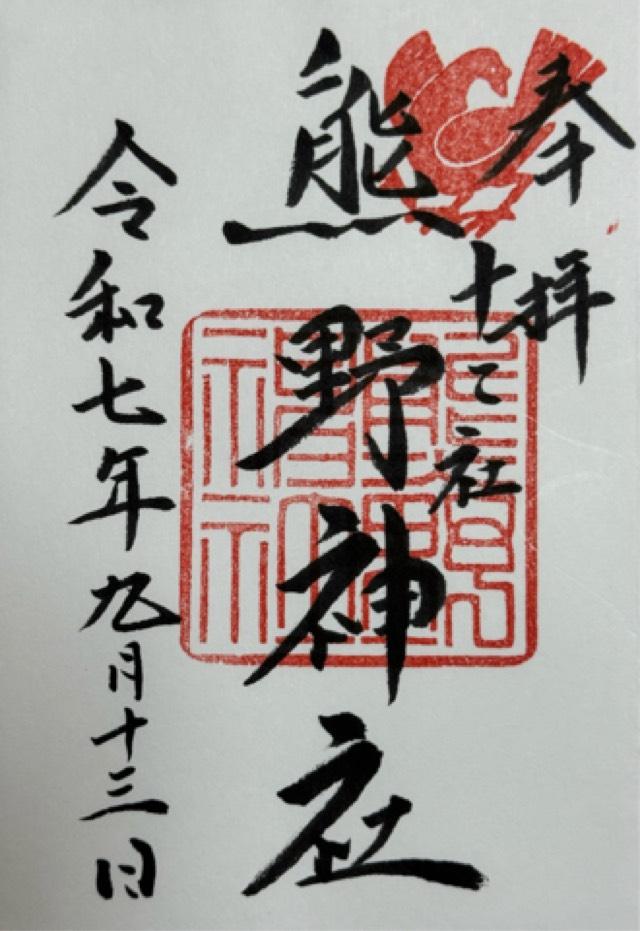 奉拝
十二社
熊野神社
令和七年九月十三日
熊野
神社